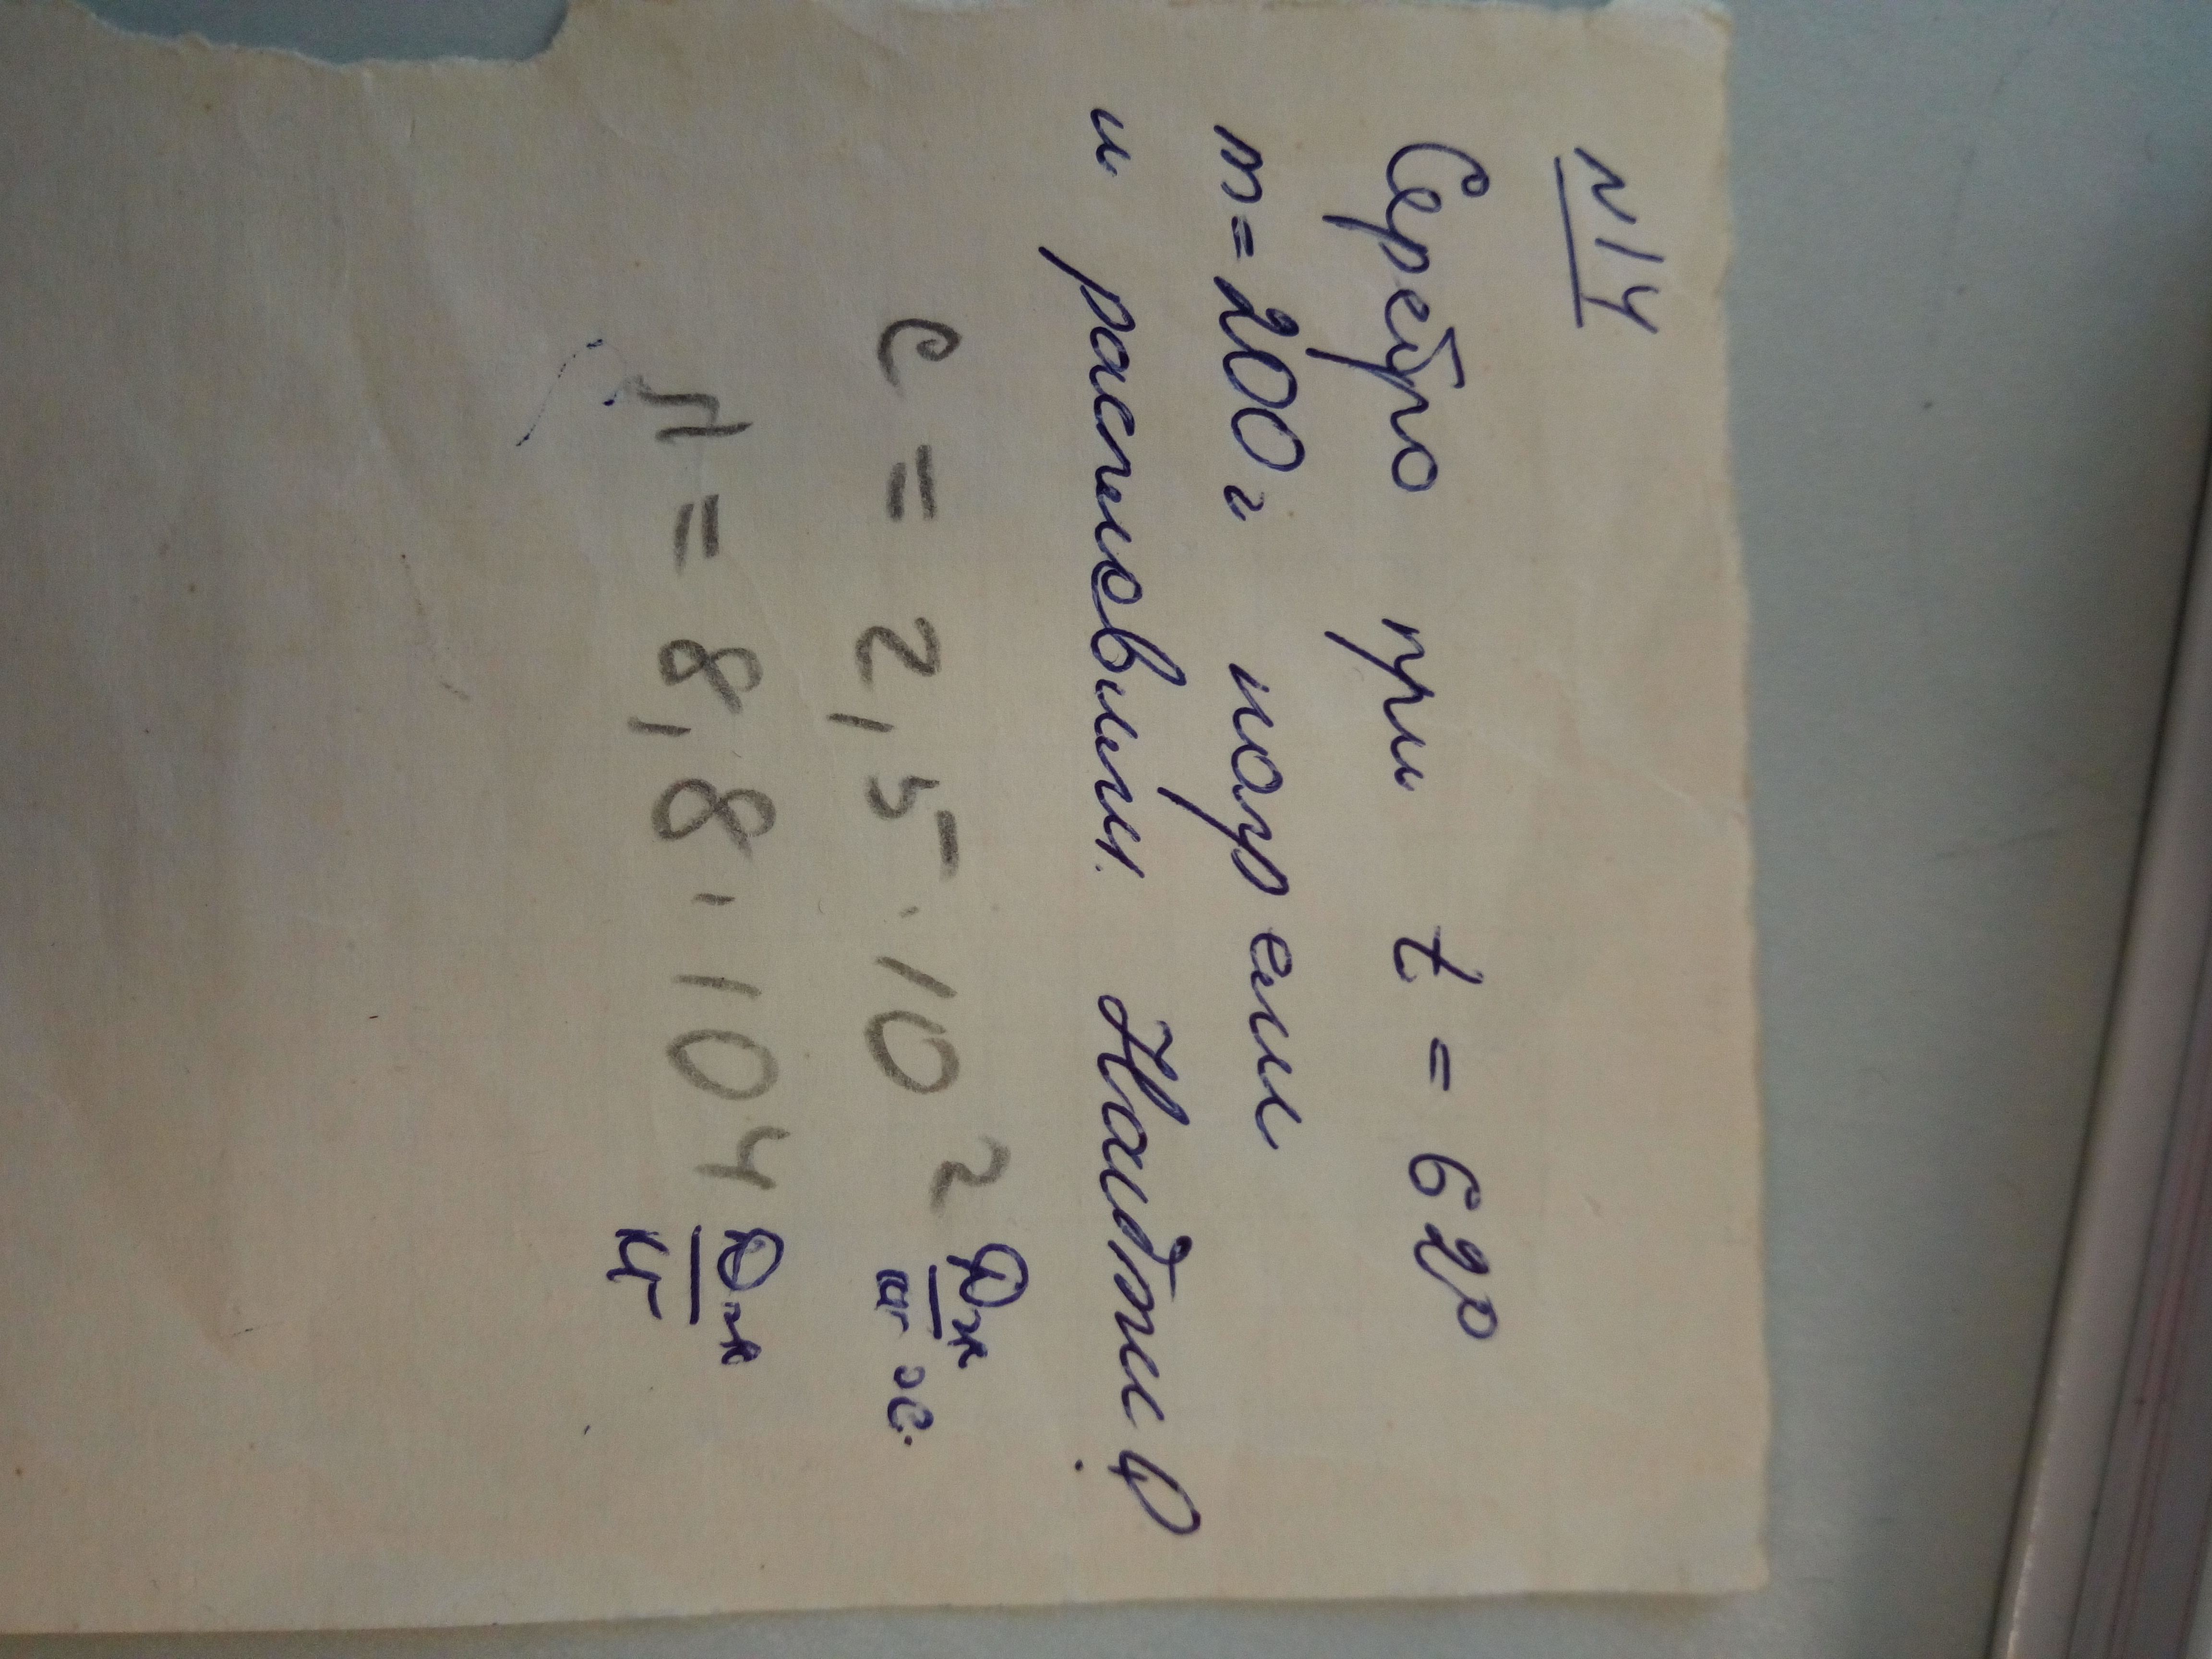 N14
Серебро при t = 62°
m=200г нагрели
и расплавили. Найдти Q
c = 2,5·10² Дж/кг°С.
λ = 8,8·10⁴ Дж/кг